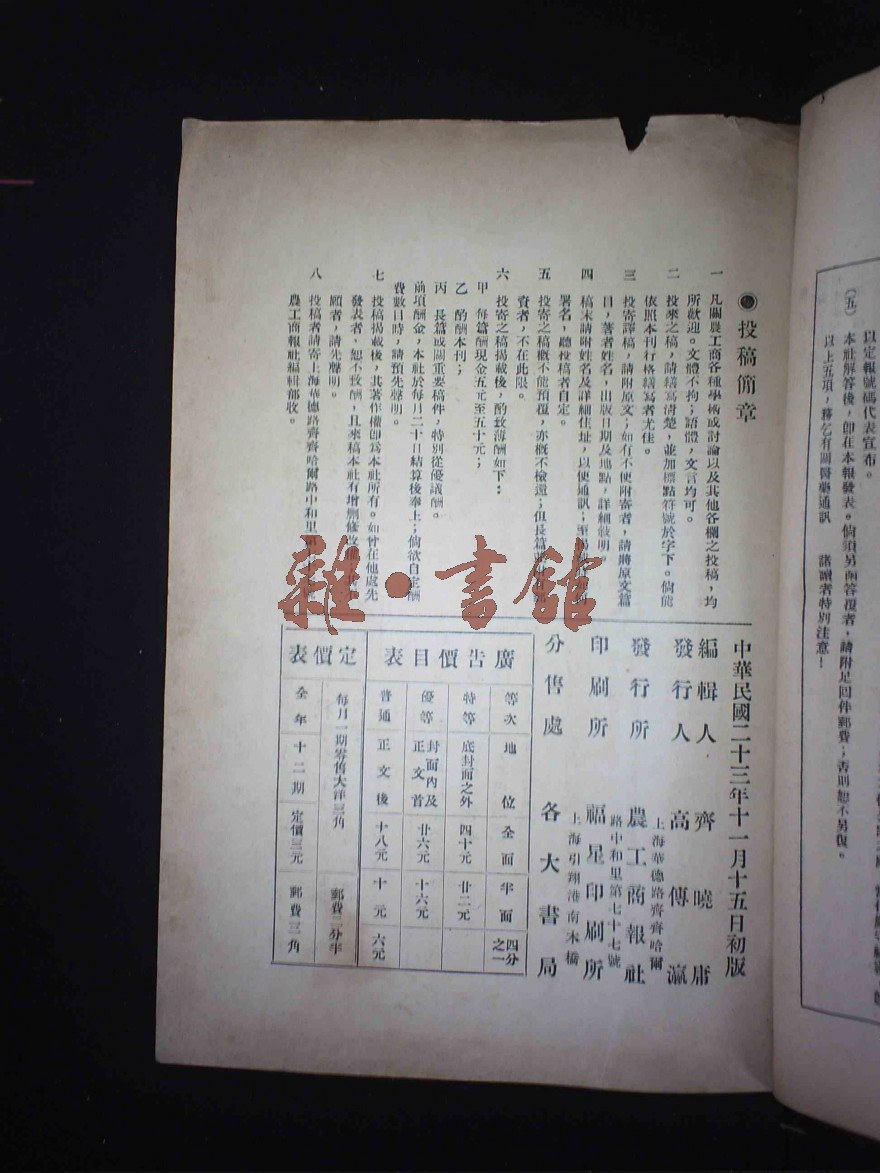 以定報號碼代表宣布。
(五) 本社解答後,即在本報發表。倘須另函答覆者,請附足回件郵費;否則恕不另復。
以上五項,務乞有關醫藥通訊 諸讀者特別注意!
投稿簡章
一 凡關農工商各種學術或討論以及其他各欄之投稿,均
所歡迎。文體不拘;語體,文言均可。
二 投來之稿,請繕寫清楚,並加標點符號於字下。倘能
依照本刊行格繕寫者尤佳。
三 投寄譯稿,請附原文;如有不便附寄者,請將原文篇
目,著者姓名,出版日期及地點,詳細敘明。
四 稿末請附姓名及詳細住址,以便通訊;至
署名,聽投稿者自定。
五 投寄之稿概不能預覆,亦概不檢還;但長篇
費者,不在此限。
六 投寄之稿揭載後,酌致薄酬如下:
甲 每篇酬現金五元至五十元;
乙 酌酬本刊;
丙 長篇或關重要稿件,特別從優議酬。
前項酬金,本社於每月二十日結算後奉上;倘欲自定酬
費數目時,請預先聲明。
七 投稿揭載後,其著作權即為本社所有。如曾在他處先
發表者,恕不致酬,且來稿本社有增刪修改
願者,請先聲明。
八 投稿者請寄上海華德路齊齊哈爾路中和里第
農工商報社編輯部收。
中華民國二十三年十一月十五日初版
編輯人 齊曉庸
發行人 高傅瀛
上海華德路齊齊哈爾
發行所 農工商報社
路中和里第七十七號
印刷所 福星印刷所
上海引翔港南木橋
分售處 各大書局
廣告價目表
等次 地位 全面 半面 四分之一
特等 底封面之外 四十元 廿二元
優等 封面內及正文首 廿六元 十六元
普通 正文後 十八元 十元 六元
定價表
每月一期零售大洋三角 郵費二分半
全年十二期 定價三元 郵費三角
雜·書館